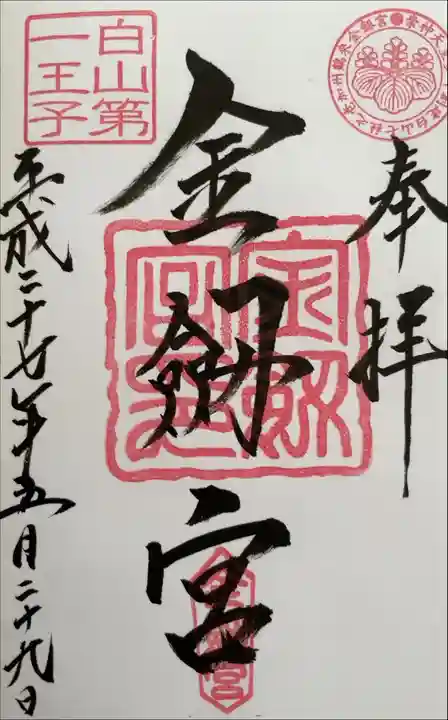 奉拝
白山第
一王子
金劔宮
金劔
宮印
金劔宮
平成二十七年五月二十九日